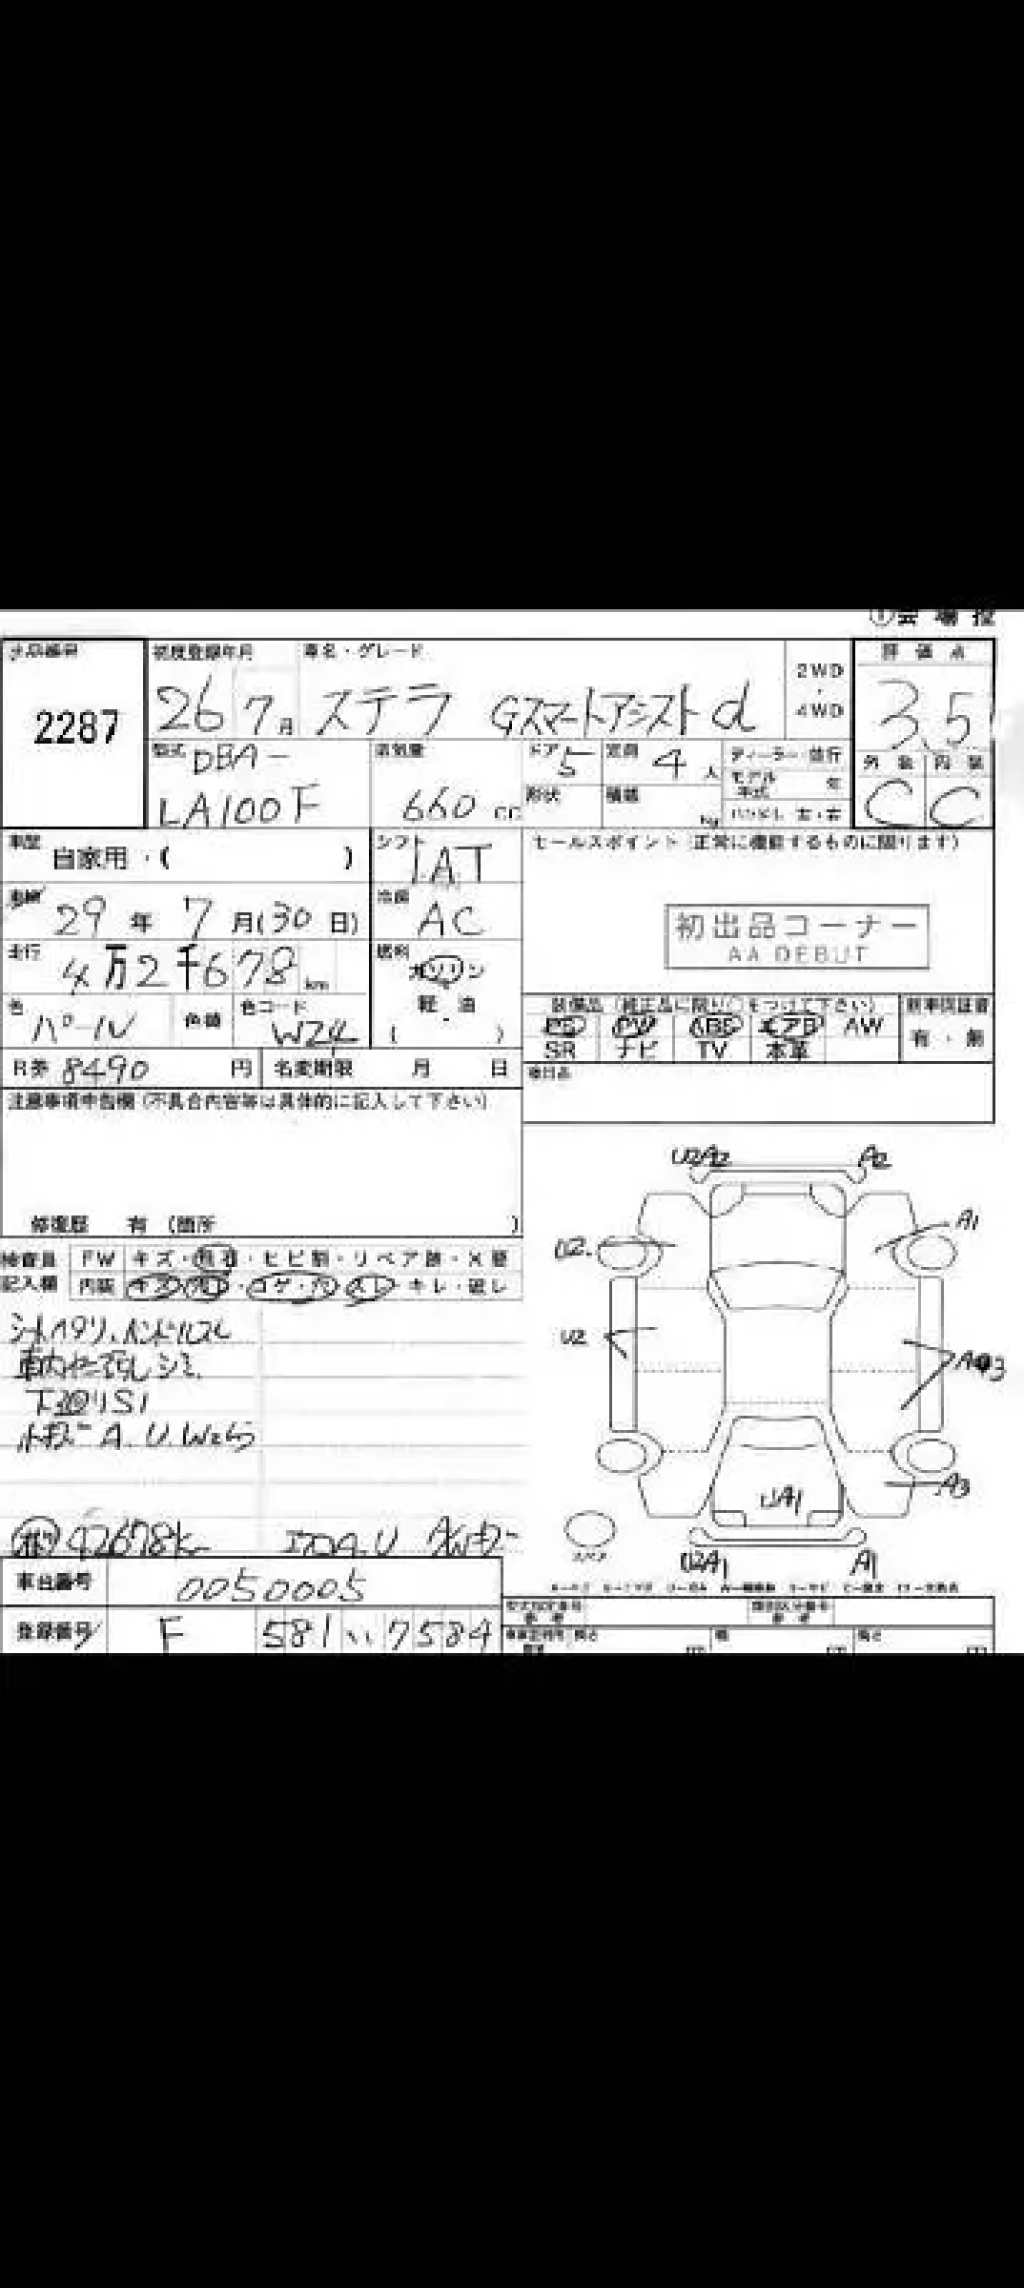 ①会場控
出品番号
2287
初度登録年月
26 7月
車名・グレード
ステラ Gスマートアシスト d
2WD
・
4WD
評価点
3.5
外装 内装
C C
型式 DBA-
LA100F
排気量
660 cc
ドア 5
定員 4 人
形状
積載
kg
ディーラー・並行
モデル年式 年
ハンドル 左・右
車歴 自家用・( )
シフト IAT
セールスポイント (正常に機能するものに限ります)
車検 29年 7月(30日)
冷房 AC
初出品コーナー
AA DEBUT
走行 4万2千678 km
燃料 ガソリン
軽油
( )
色 パール
色替
色コード W24
装備品 (純正品に限り○をつけて下さい)
PS PW ABS エアB AW
SR ナビ TV 本革
新車保証書
有・無
R券 8490 円
名変期限 月 日
後日品
注意事項申告欄 (不具合内容等は具体的に記入して下さい)
修復歴 有 (箇所 )
検査員
記入欄
FW キズ・飛石・ヒビ割・リペア跡・X要
内装 キズ・汚レ・コゲ・穴・スレ・キレ・破レ
シートヘタリ、ハンドルスレ
車内ヤニ汚レ シミ
下廻りS1
小キズ A.U.W
42678k
U2A2 A2
U2 A1
U2
A3
UA1
U2A1 A1
スペア
車台番号 0050005
登録番号 F 581 い 7584
型式指定番号
類別区分番号
長さ 幅 高さ